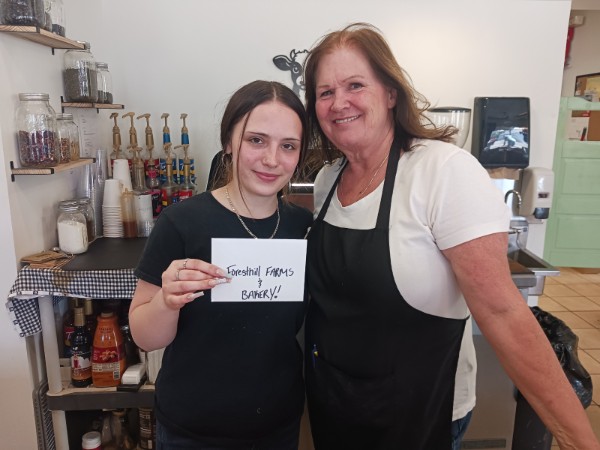 Foresthill FARMS
&
BAKERY!